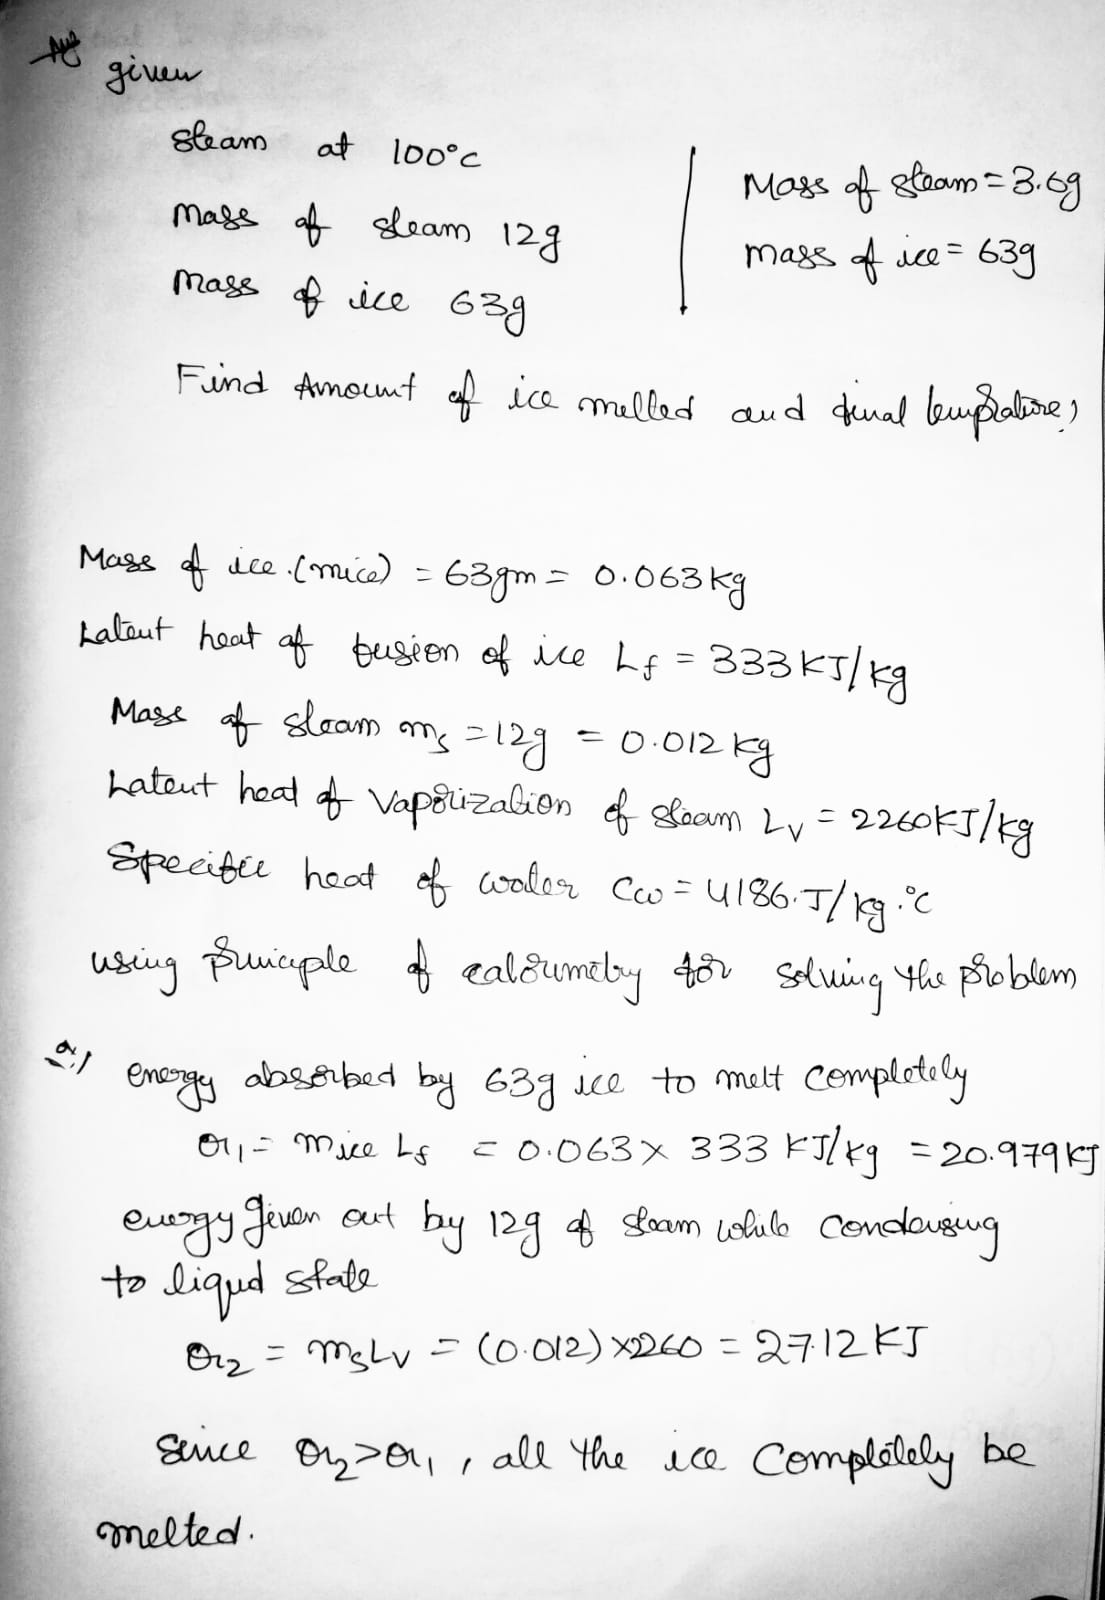 Ans
given
steam at 100°c
mass of steam 12g
Mass of ice 63g
Mass of steam = 3.6g
mass of ice = 63g
Find Amount of ice melted and final temprature?
Mass of ice (mice) = 63gm = 0.063 kg
Latent heat of fusion of ice Lf = 333 KJ/kg
Mass of steam ms = 12g = 0.012 kg
Latent heat of vaporization of steam Lv = 2260KJ/kg
Specific heat of water Cw = 4186 J/kg.°C
using principle of calorimetry for solving the problem
a.) energy absorbed by 63g ice to melt completely
Q1 = mice Lf = 0.063 x 333 KJ/kg = 20.979 KJ
energy given out by 12g of steam while condensing
to liqud state
Q2 = msLv = (0.012) x2260 = 27.12 KJ
Since Q2 > Q1, all the ice completely be
melted.